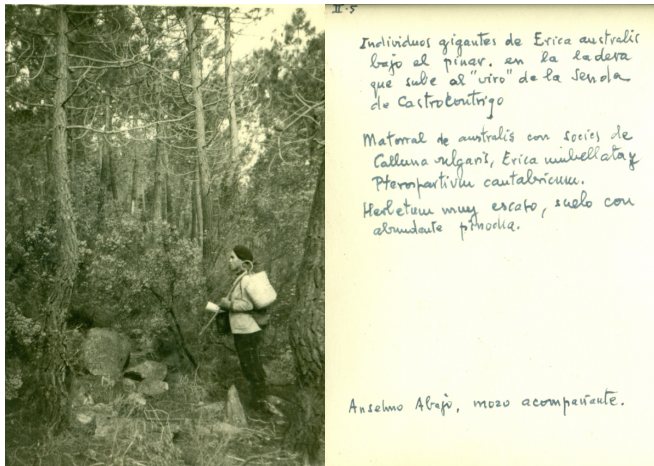 II-5
Individuos gigantes de Erica australis
bajo el pinar. en la ladera
que sube al "viro" de la Senda
de Castrocontrigo
Matorral de australis con socies de
Calluna vulgaris, Erica umbellata y
Pterospartium cantabricum.
Herbetum muy escaso, suelo con
abundante pinocha.
Anselmo Abajo, mozo acompañante.